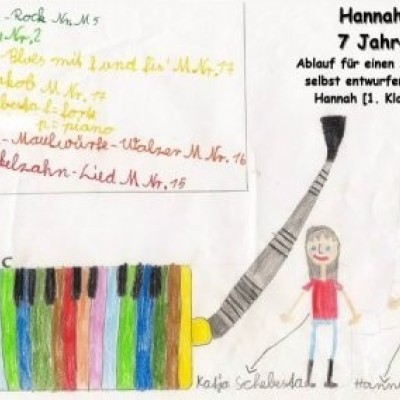 -Rock Nr. M 5
Nr. 2
-Blues mit f und fis' M Nr. 17
akob M Nr. 17
f = forte
p = piano
- Maulwürfe-Walzer M Nr. 16
kelzahn-Lied M Nr. 15
Hannah
7 Jahr
Ablauf für einen
selbst entwurfe
Hannah [1. Kla
C
Katja Schebesta
Hann